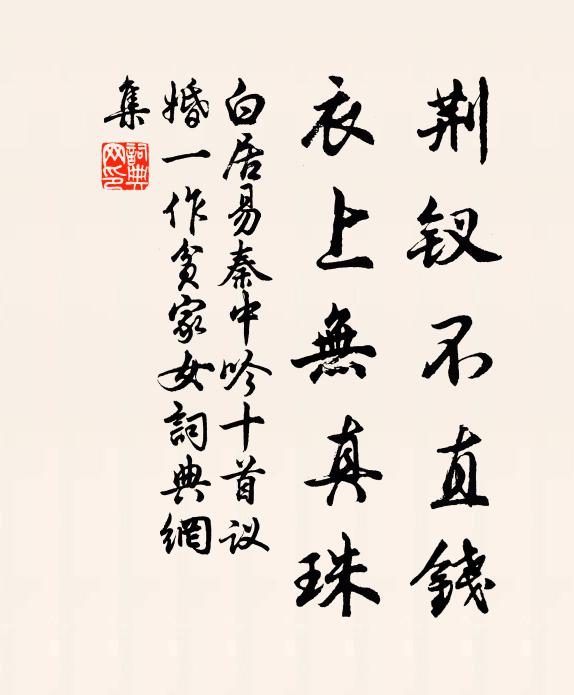 荆钗不直錢
衣上無真珠
白居易秦中吟十首议
婚一作贫家女詞典網
集
詞典
网印